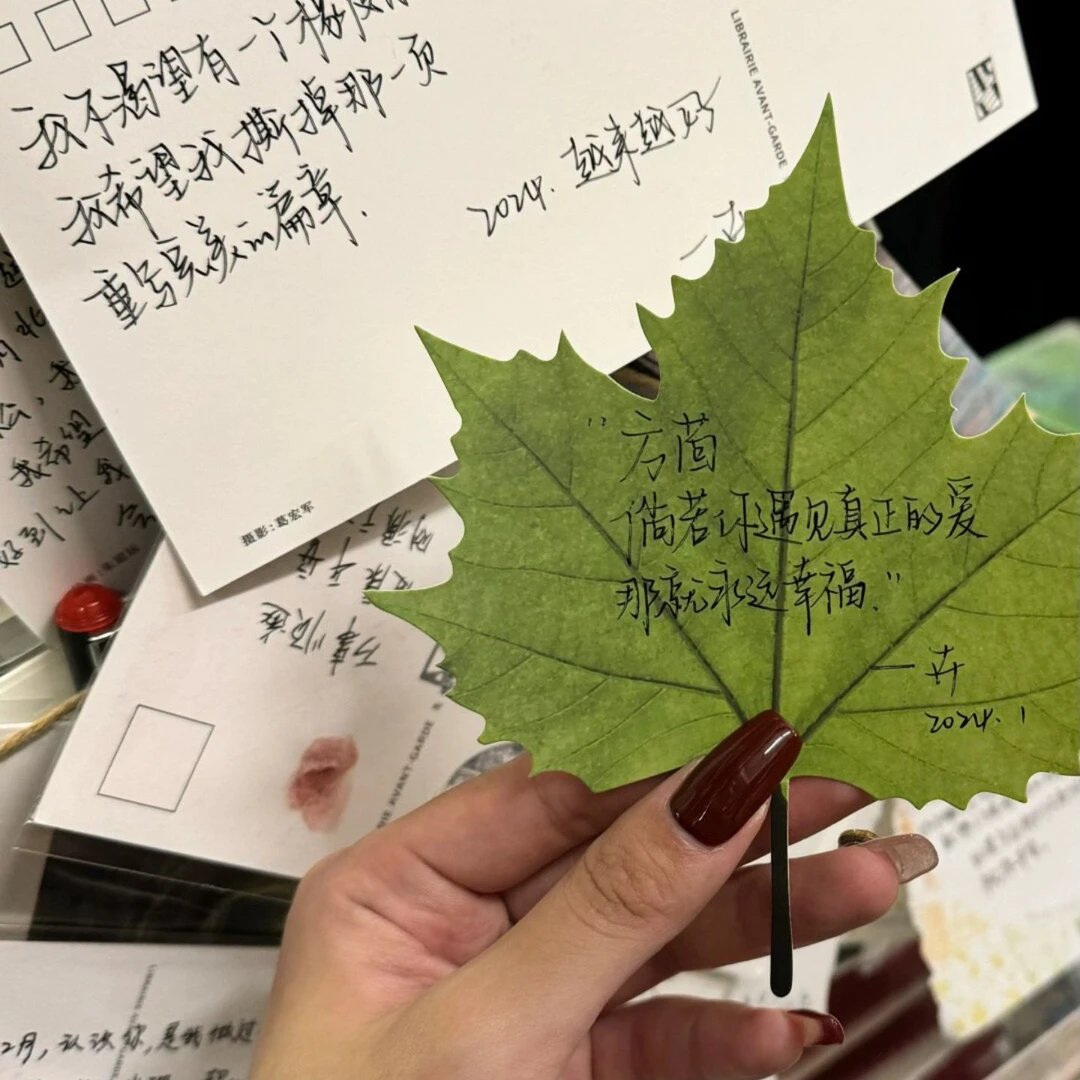 我不渴望有一个橡皮
我希望我撕掉那一页
重写完美的篇章.
2024.越来越好
一卉
LIBRAIRIE AVANT-GARDE
摄影:葛宏军
"方茵
倘若你遇见真正的爱
那就永远幸福."
一卉
2024.1
万事顺遂
我希望
好到让我
AVANT-GARDE
2月,认识你,是我做过